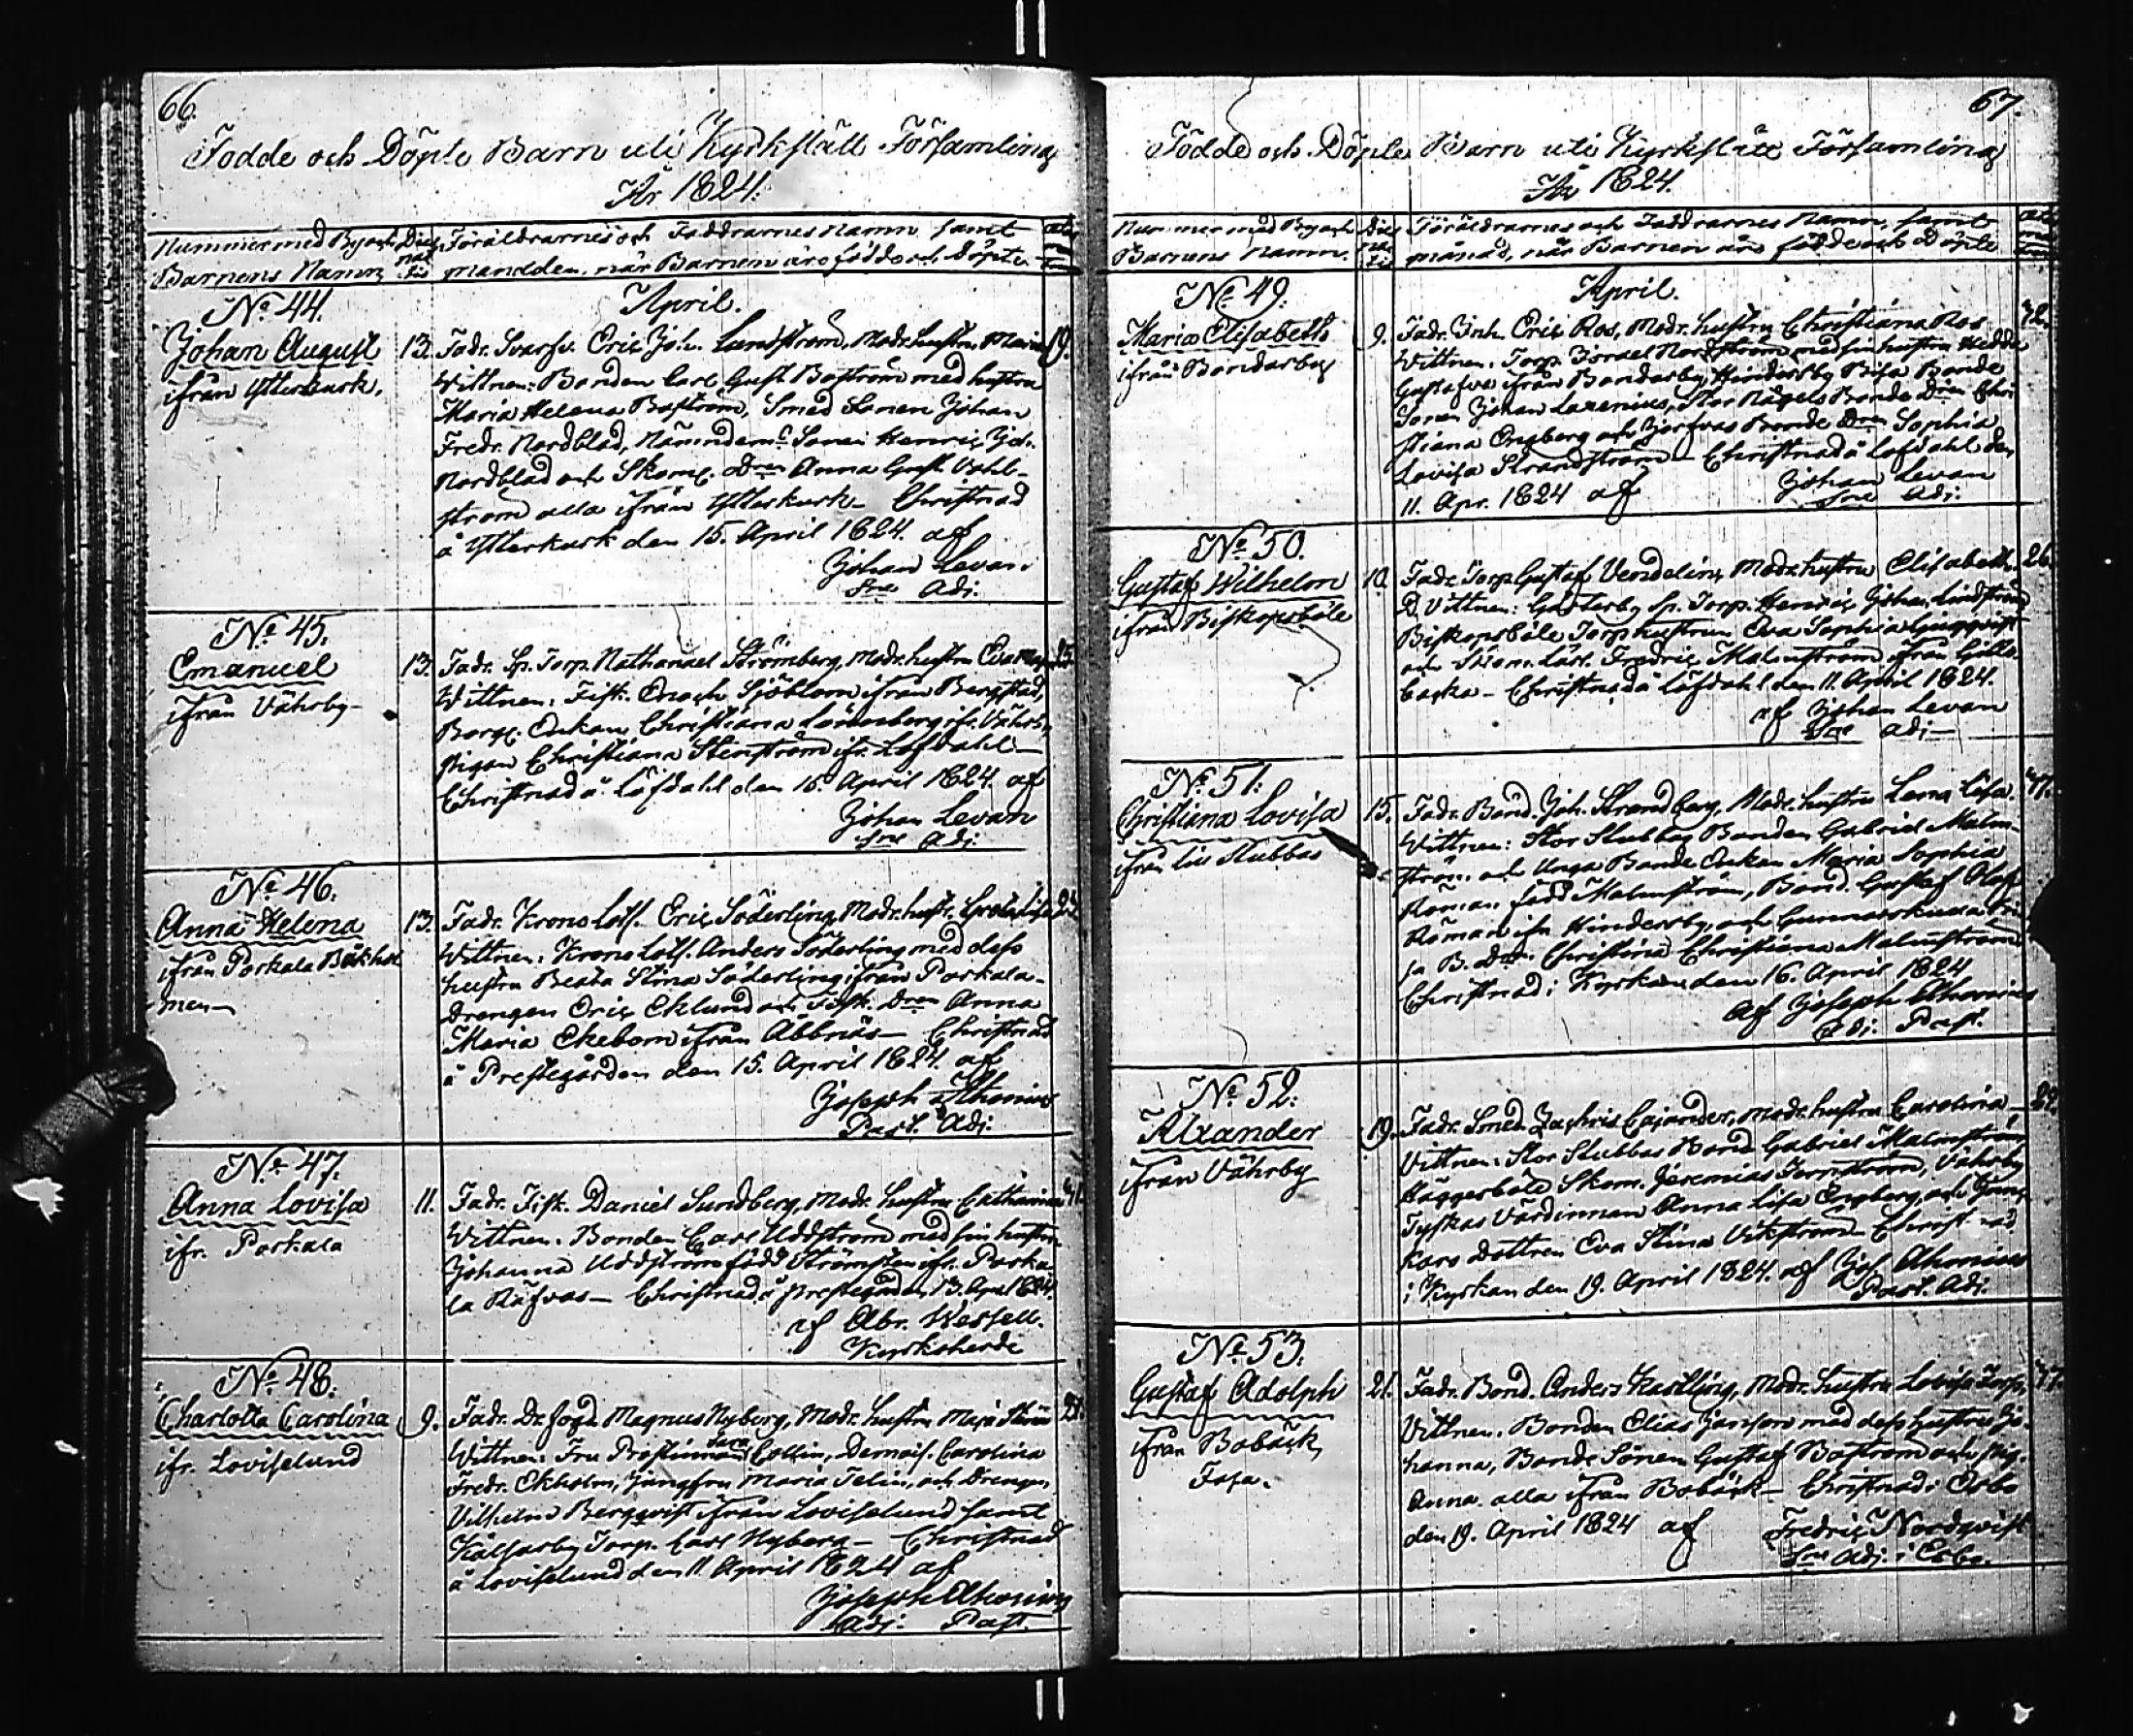 66.
Födde och Döpte Barn uti Kyrkslätt Församling
År 1824.
Nummer med By och Dies Föräldrarnes och Faddrarnes Namn samt
Barnens Namn månaden, när Barnen äro födde och Döpte
No 44. April.
Johan August 13. Fadr. Eric Joh. Lundström, Modr. hustru Maria 19.
ifrån Ytterkurk. Wittnen: Bonden Carl Gust Boström med hustru
Maria Helena Boström, Smed Sonen Johan
Fredr. Nordblad, Nämndems Sonen Henric Joh.
Nordblad och Skom. Dren Anna Gust. Vahl-
ström alla ifrån Ytterkurk – Christnad
å Ytterkurk den 15. April 1824. af
Johan Levan
Sne Adj.
No 45.
Emanuel 13. Fadr. Sp. Torp. Nathanael Strömberg, Modr. hustru Eva 25.
ifrån Vährby – Wittnen: Fisk. Enoch Sjöblom ifrån Bergstad,
Enkan Christiana ifr. Vährby,
pigan Christiana Stenström ifr. Löfdahl –
Christnad å Löfdahl den 15. April 1824. af
Johan Levan
Sne Adj.
No 46.
Anna Helena 13. Fadr. Krono Lots. Eric Söderling, Modr. hustr. Greta Lisa
ifrån Porkala Båkhol Wittnen: Krono Lots. Anders Söderling med dess
men – hustru Beata Stina Söderling ifrån Porkala –
Drengen Eric Eklund och Fisk. Dren Anna
Maria Ekebom ifrån Åbbnäs – Christnad
å Prestegården den 15. April 1824. af
Joseph Ahonius
Past. Adj.
No 47.
Anna Lovisa 11. Fadr. Fisk. Daniel Sundberg, Modr. hustru Catharina 41.
ifr. Porkala Wittnen: Bonden Carl Uddström med sin hustru
Johanna Uddström född Strömsten ifr. Porka-
la Räfvas – Christnad å prestegården 13. April 1824.
af Abr. Wessell.
Kyrkoherde
No 48.
Charlotta Carolina 9. Fadr. Dr. fogd. Magnus Nyberg, Modr. hustru Maja Stina
ifr. Loviselund Wittnen: Fru Prostinnan Sara Collin, Demois. Carolina
Fredr. Ekholm, Jungfru Maria Telin, och Drengen
Vilhelm Bergqvist ifrån Loviselund samt
Torp. Carl Nyberg – Christnad
å Loviselund den 11. April 1824 af
Joseph Ahonius
Adj. Past.
67.
Födde och Döpte Barn uti Kyrkslätt Församling
År 1824.
Nummer med By och Dies Föräldrarnes och Faddrarnes Namn, samt
Barnens Namn. månad, när Barnen äro födde och Döpte
No 49. April.
Maria Elisabeth 9. Fadr. Inh. Eric Ros, Modr. hustru Christiana Ros 42.
ifrån Bondarby Wittnen: Torp. Israel Nordström med sin hustru Hedda
Gustafva ifrån Bondarby, Hindersby Bisa Bonde
Sonen Johan Laxenius, Stor Rågels Bonde Dren Chri-
stiana Engberg och Jorfvas Bonde Dren Sophia
Lovisa Strandström – Christnad å Löfdahl den
11. Apr. 1824 af Johan Levan
Sne Adj.
No 50.
Gustaf Wilhelm 10. Fadr. Torp. Gustaf Vendelin, Modr. hustru Elisabeth. 26.
ifrån Biskopsböle D. Vittnen: Gästerby Sp. Torp. Henric Johan Lindström
Biskopsböle Torp hustrun Eva Sophia Ljungqvist
och Skom. Lärl. Fredric Malmström ifrån Gille-
backa – Christnad å Löfdahl den 11. April 1824.
af Johan Levan
Sne Adj –
No 51.
Christiana Lovisa 15. Fadr. Bond. Joh. Strandberg, Modr. hustru Lena Lisa. 47.
ifrån Lill Stubbas Wittnen: Stor Stubbas Bonden Gabriel Malm-
ström, och Unga Bonde Enkan Maria Sophia
Roman född Malmström, Bond. Gustaf Olof
Roman ifrn Hindersby, och Gunnarskulla
B. Dren Christina Christiana Malmström
Christnad i Kyrkan den 16. April 1824
af Joseph Ahonius
Adj. Past.
No 52.
Alexander 19. Fadr. Smed. Zachris Cajander, Modr. hustru Carolina – 29.
ifrån Vährby Vittnen: Stor Stubbas Bond Gabriel Malmström
Häggesböle Skom. Jeremias Ternström, Vährby
Tyskas Värdinnan Anna Lisa Engberg, och
Kars Dottren Eva Stina Vikström Christnad
i Kyrkan den 19. April 1824. af Jos. Ahonius
Past. Adj.
No 53.
Gustaf Adolph 21. Fadr. Bond. Anders Karlling, Modr. hustru Lovisa
ifrån Bobäck, Vittnen: Bonden Elias Janson med dess hustru Jo-
Fasa. hanna, Bonde Sonen Gustaf Boström och pig.
Anna alla ifrån Bobäck – Christnad i Esbo
den 19. April 1824 af Fredric Nordqvist
Sne Adj. i Esbo.